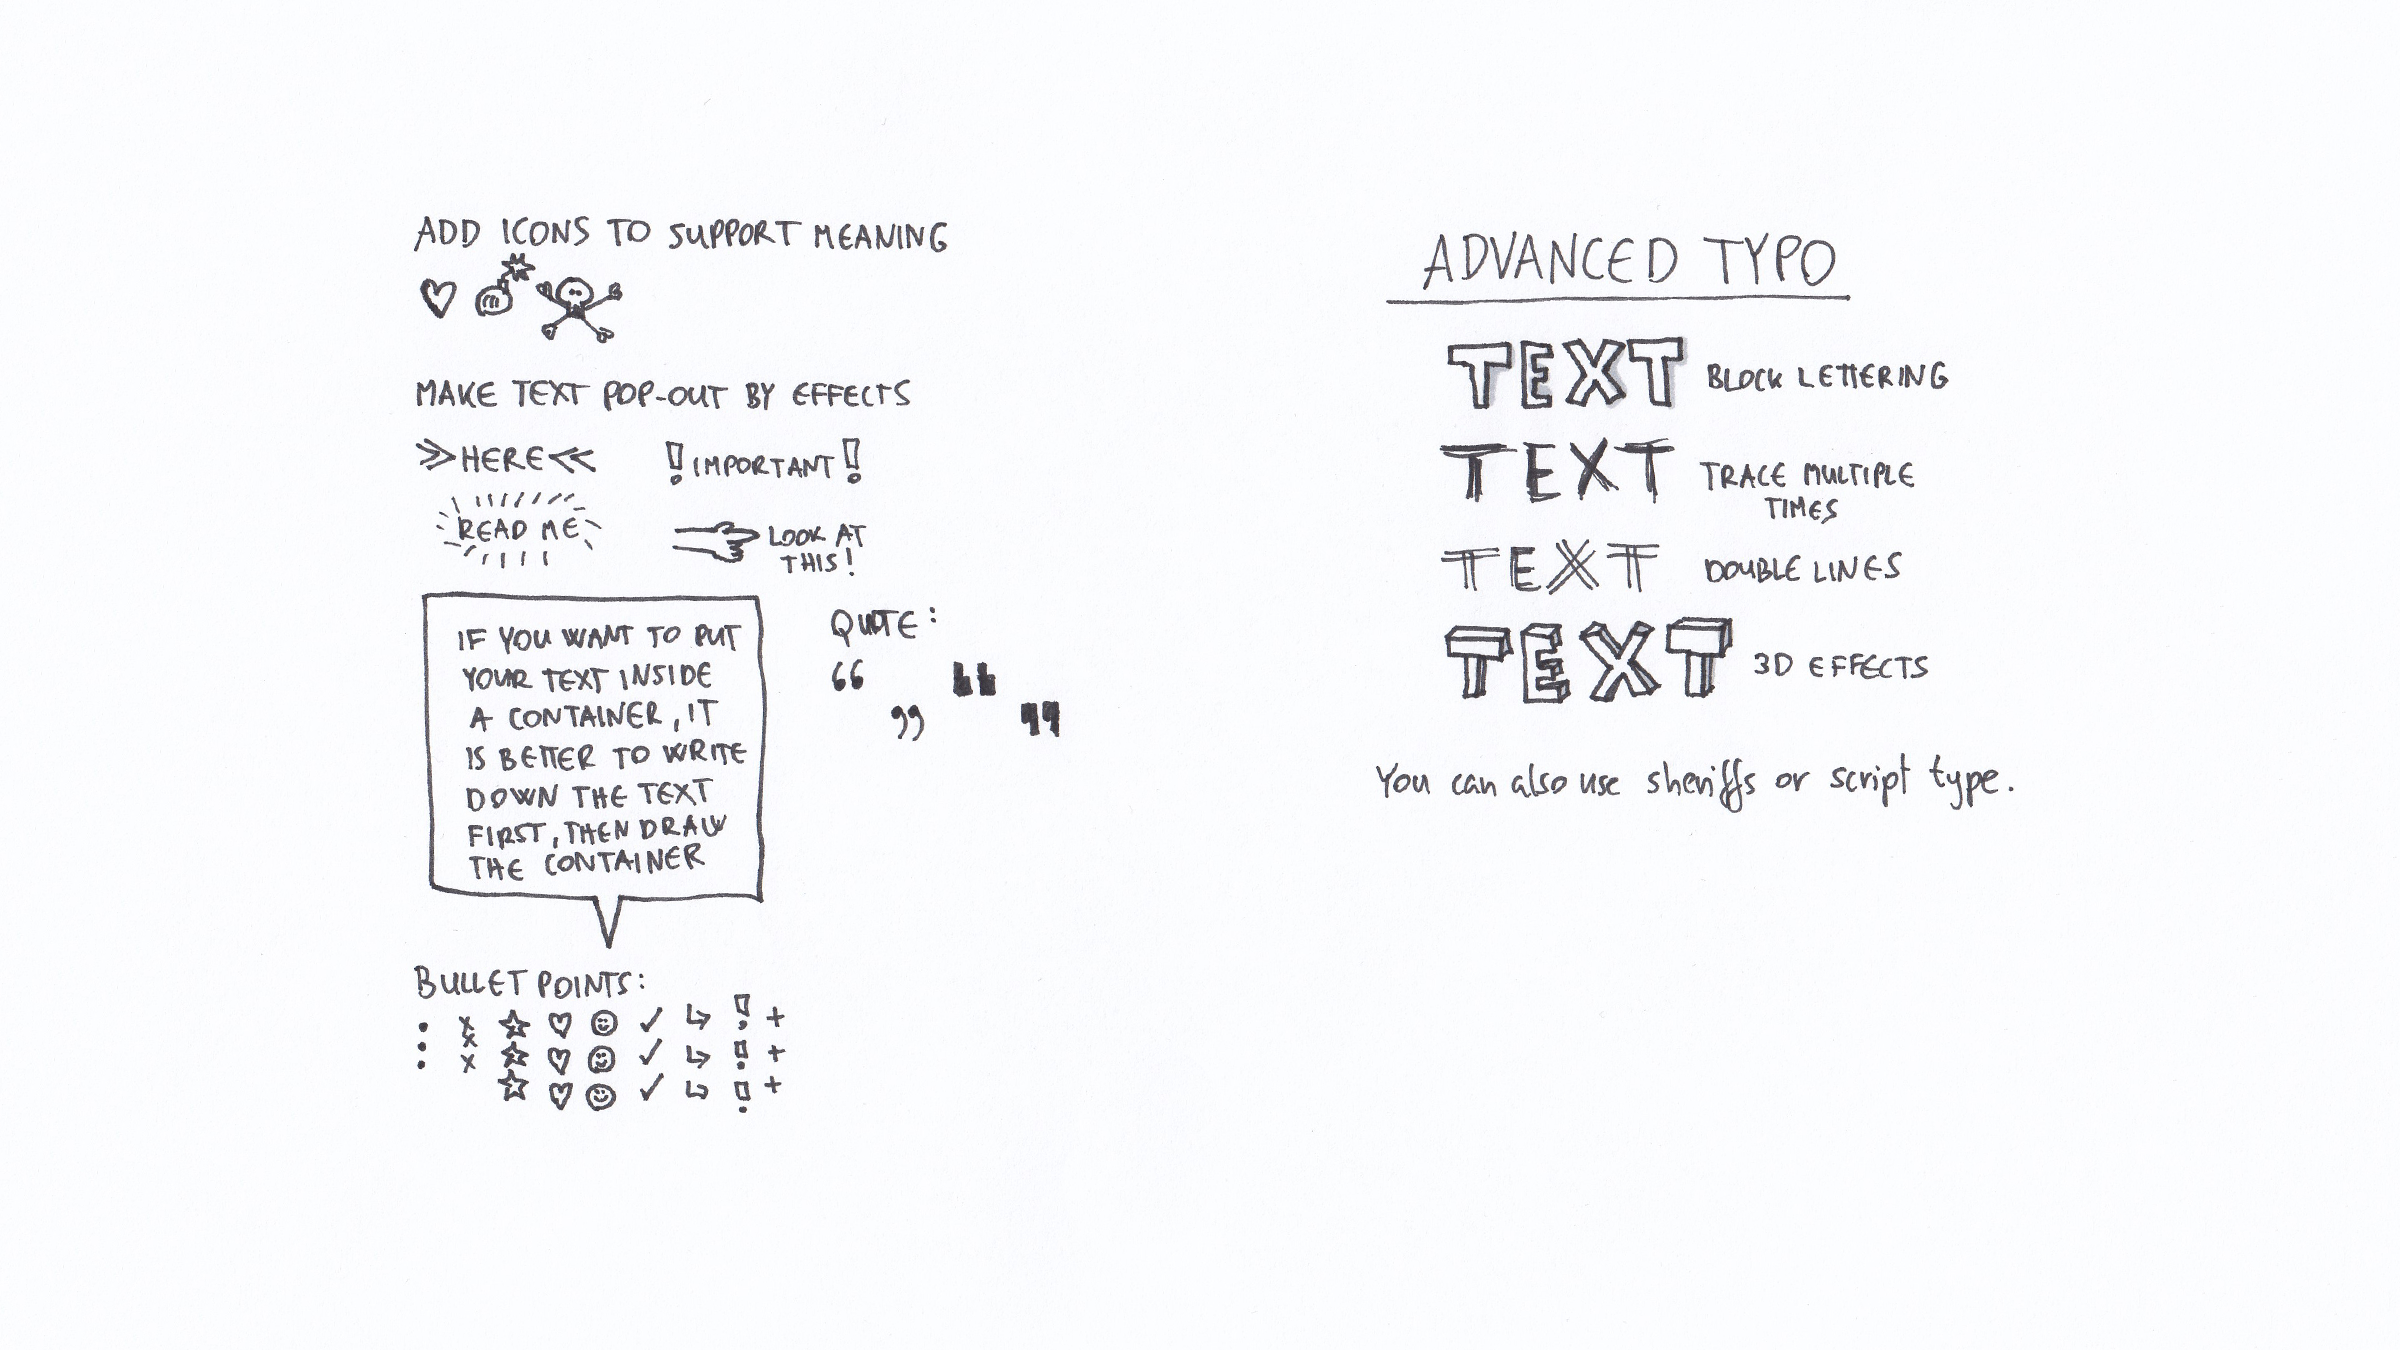 ADD ICONS TO SUPPORT MEANING
MAKE TEXT POP-OUT BY EFFECTS
>>HERE<<
!IMPORTANT!
READ ME
LOOK AT
THIS!
IF YOU WANT TO PUT
YOUR TEXT INSIDE
A CONTAINER, IT
IS BETTER TO WRITE
DOWN THE TEXT
FIRST, THEN DRAW
THE CONTAINER
QUOTE:
“ ”
“ ”
BULLET POINTS:
ADVANCED TYPO
TEXT BLOCK LETTERING
TEXT TRACE MULTIPLE
TIMES
TEXT DOUBLE LINES
TEXT 3D EFFECTS
You can also use sheriffs or script type.